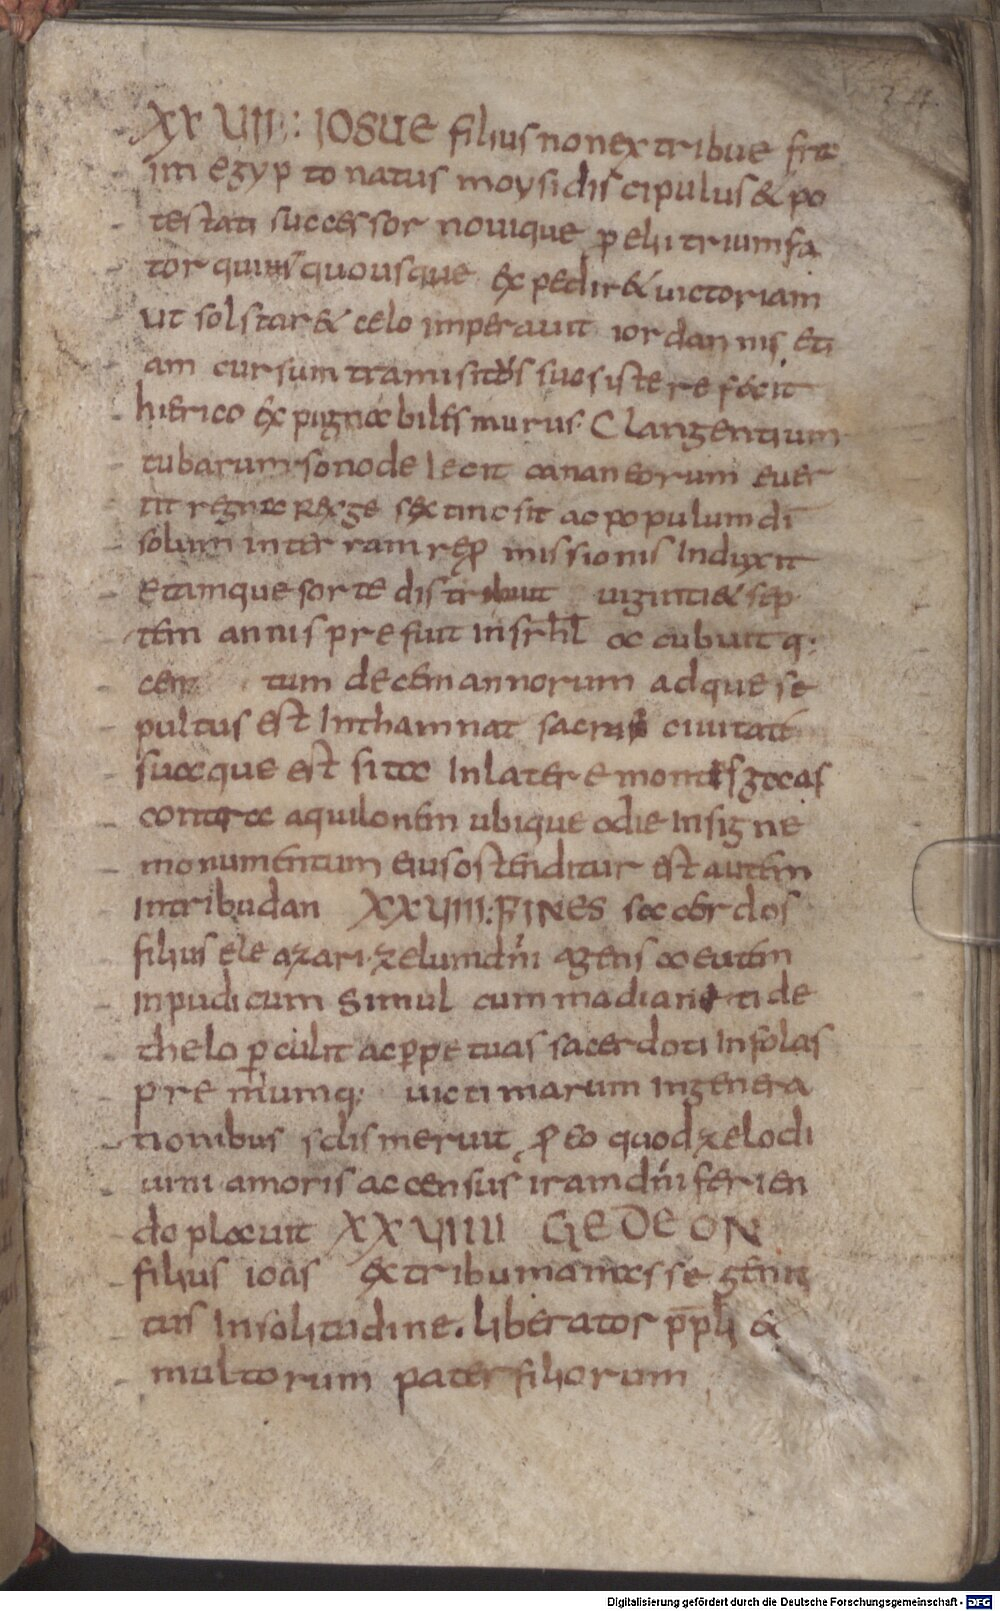 24
XXVIII: IOSUE filius non ex tribue frat
im egypto natus moysi discipulus & po
testati successor nouique p eli triumfa
tor quius quousque expedir& uictoriam
ut sol star& celo imperauit iordannis eti
am cursum tramisitos suo sistere fecit
hierico expugnabiles murus. Clangentium
tubarum sono delecit cananeorum euer
tit regna reges extincsit ac populum di
solum inter ram rep missionis Induxit
Etamque sorte distribuit uiginti & sep
tem annis prefuit In srhl ac cubuit q;
cen tum decem annorum adque se
pultus est Inthamnat sacra ciuitati
suaque est sita In latere montes gaas
contra aquilonem ubique odie Insigne
monumentum eius ostenditur est autem
Intribudan XXVIIII: FINES sacerdos
filius eleazari. zelumdni agens coeutem
Inpudicum Simul cum madianitide
thelo pculit ac ppetuas sacerdoti Infolas
premiumq; uictimarum Ingenera
tionibus sdis meruit p eo quod zelodi
uini amoris accensus iramdni ferien
do placuit XXVIIII GEDEON
filius ioas ex tribu manasse genit
tus In solitudine. liberator ppli &
multorum pater filiorum
Digitalisierung gefördert durch die Deutsche Forschungsgemeinschaft - DFG